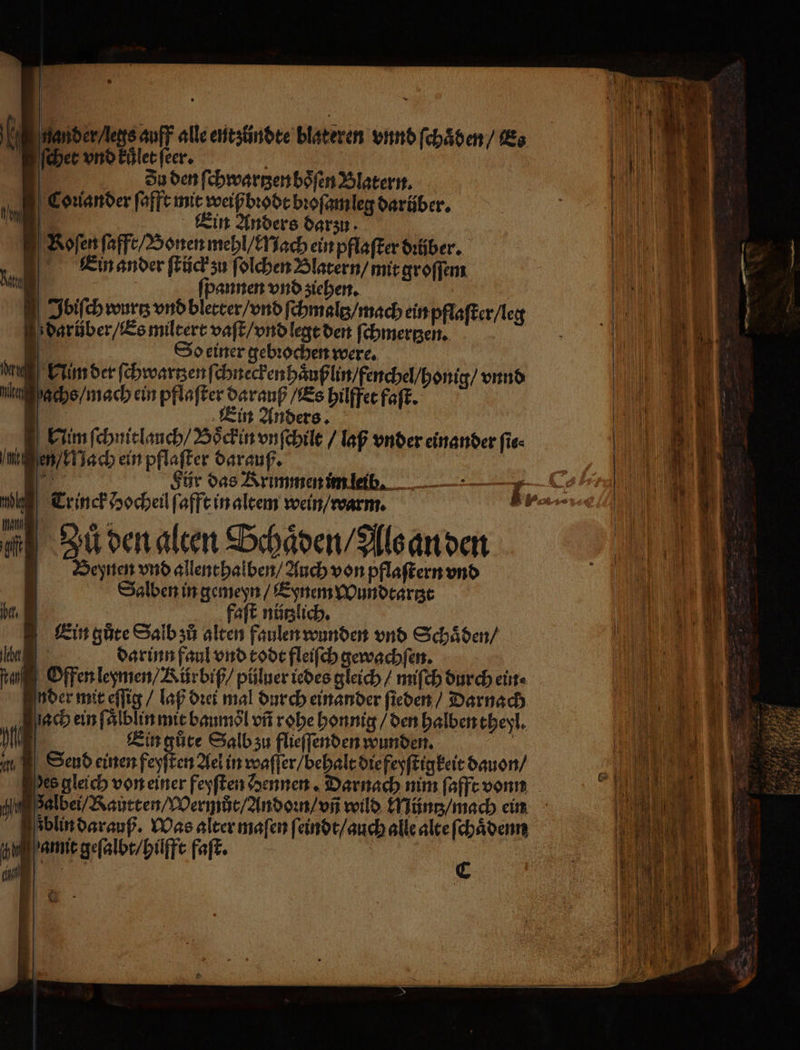 nander/legs auff alle entzündte blateren vnnd ſchåden / Es
ſchet vnd kůlet ſeer.
Zu den ſchwartzen böſen Blatern.
Coriander ſafft mit weißbrodt broſam leg darüber.
Ein Anders darzu.
Roſen ſafft/Bonen mehl/Mach ein pflaſter drüber.
Ein ander ſtück zu ſolchen Blatern/ mit groſſem
ſpannen vnd ziehen.
Ibiſch wurtz vnd bletter/vnd ſchmaltz/mach ein pflaſter/leg
darüber/Es miltert vaſt/vnd legt den ſchmertzen.
So einer gebrochen were.
Nim der ſchwartzen ſchnecken håußlin/fenchel/honig/ vnnd
achs/mach ein pflaſter darauß /Es hilffet faſt.
Ein Anders.
Nim ſchnitlauch/Böckin vnſchilt / laß vnder einander ſie-
en/Mach ein pflaſter darauß.
Für das Krimmen im leib.
Trinck Hocheil ſafft in altem wein/warm.
Zů den alten Schåden/Als an den
Beynen vnd allenthalben/ Auch von pflaſtern vnd
Salben in gemeyn / Eynem Wundtartzt
faſt nützlich.
Ein gůte Salb zů alten faulen wunden vnd Schåden/
darinn faul vnd todt fleiſch gewachſen.
Offen leymen/Kürbiß/ püluer iedes gleich / miſch durch ein-
nder mit eſſig / laß drei mal durch einander ſieden / Darnach
ach ein ſålblin mit baumöl vñ rohe honnig / den halben theyl.
Ein gůte Salb zu flieſſenden wunden.
Seud einen feyſten Ael in waſſer/behalt die feyſtigkeit dauon/
es gleich von einer feyſten Hennen. Darnach nim ſafft vonn
albei/Rautten/Wermůt/Andorn/vñ wild Müntz/mach ein
åblin darauß. Was alter maſen ſeindt/auch alle alte ſchådenn
amit geſalbt/hilfft faſt.
C